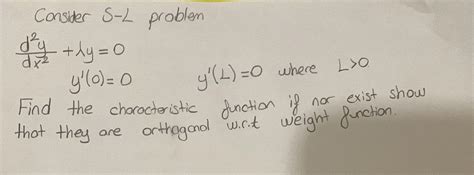 Consider S-L problem
d²y/dx² + λy = 0
y'(0) = 0 y'(L) = 0 where L>0
Find the charocteristic function if nor exist show
that they are orthogonal w.r.t weight function.